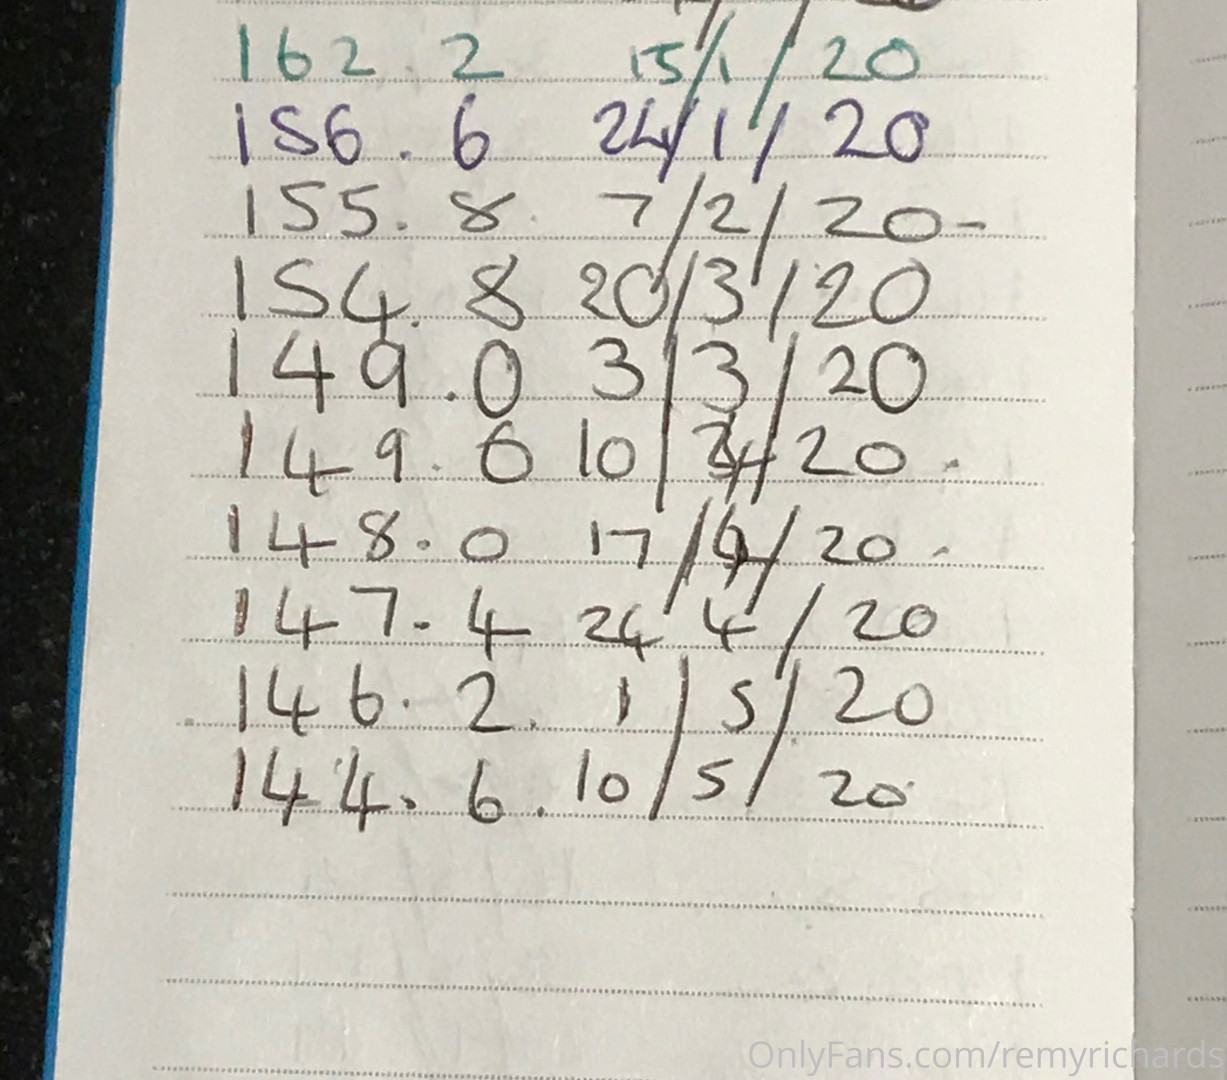 162.2 15/1/20
156.6 24/1/20
155.8 7/2/20-
154.8 20/3/20
149.0 3/3/20
149.6 10/4/20.
148.0 17/4/20-
147.4 24/4/20
146.2. 1/5/20
144.6. 10/5/20
OnlyFans.com/remyrichards